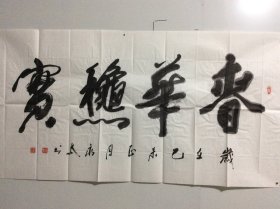 春華龝實
歲在己未正月